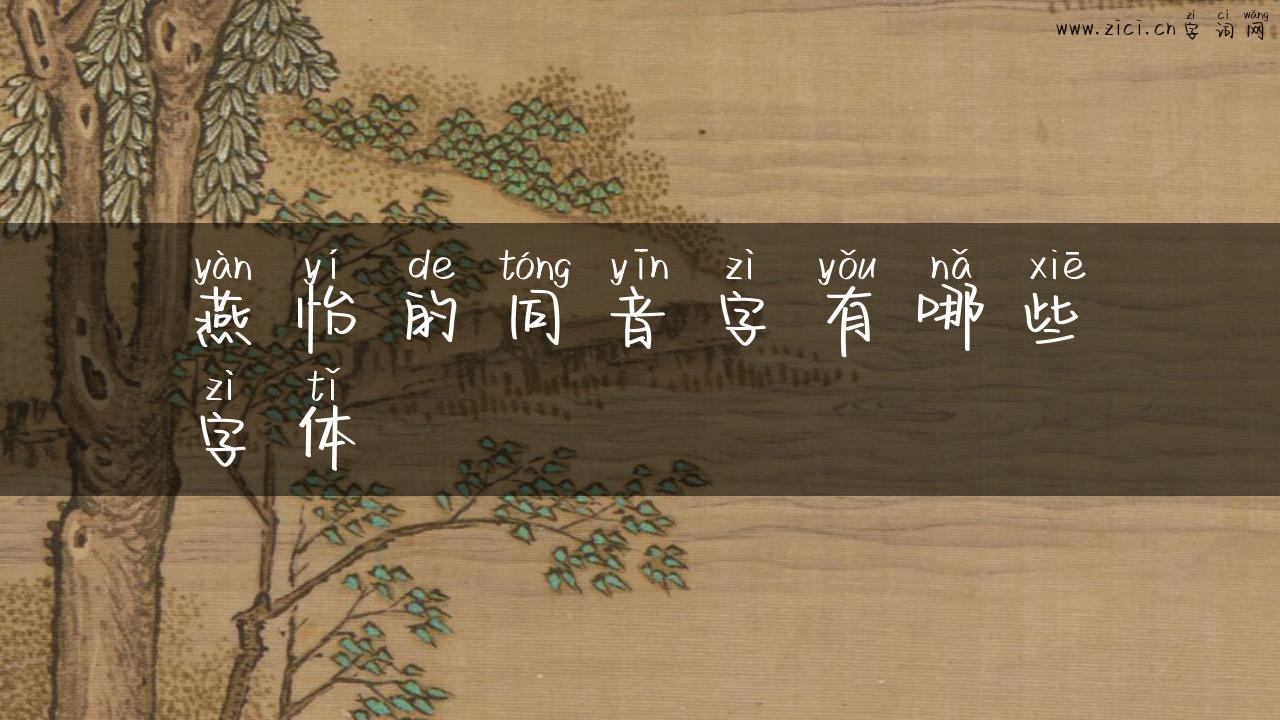 zì cí wǎng
www.zici.cn字词网
yàn yí de tóng yīn zì yǒu nǎ xiē
燕怡的同音字有哪些
zì tǐ
字体